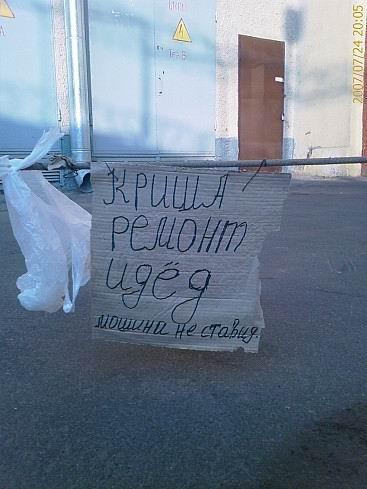 2007/07/24 20:05
КРИША
РЕМОНТ
идёд
мошина не ставид.